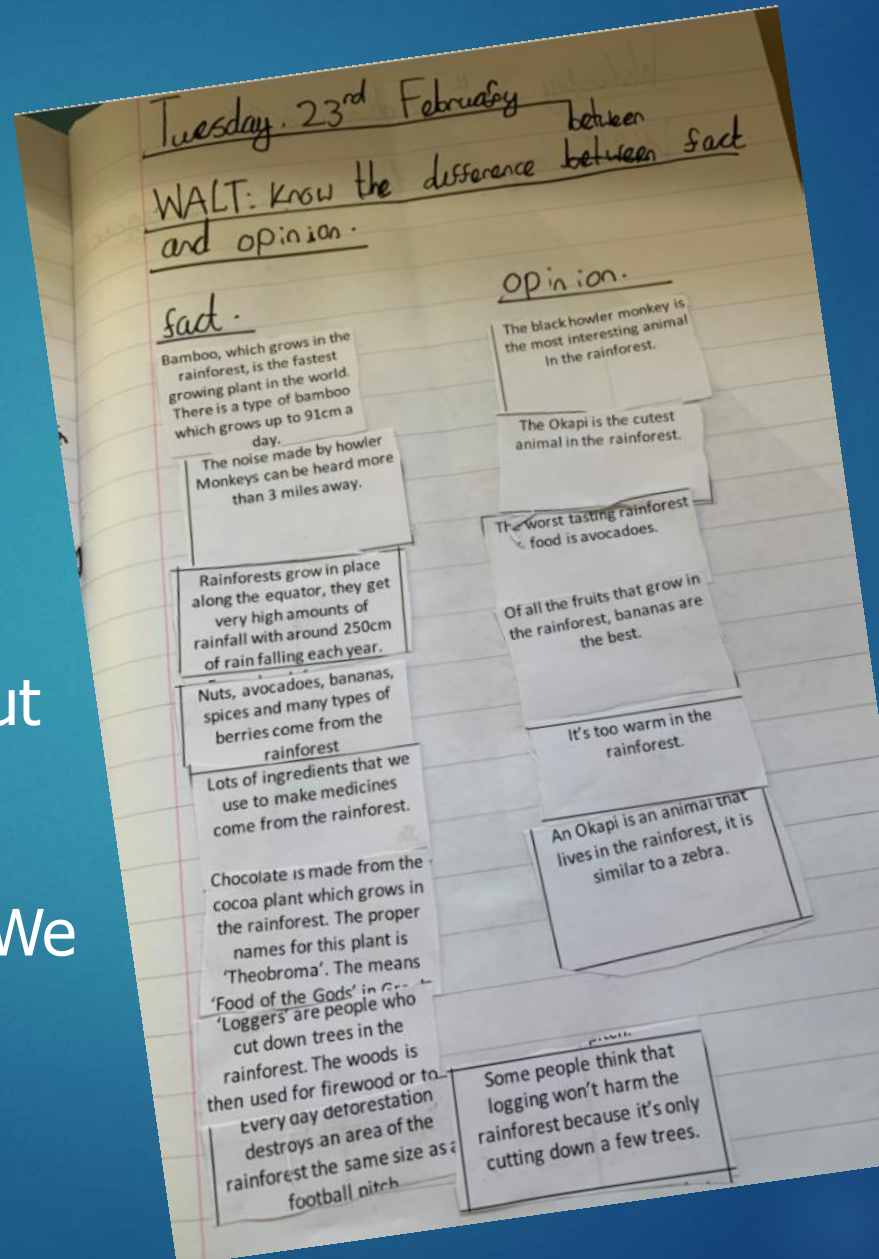 Tuesday. 23rd February
between
WALT: Know the difference between fact
and opinion.
fact.
Bamboo, which grows in the
rainforest, is the fastest
growing plant in the world.
There is a type of bamboo
which grows up to 91cm a
day.
The noise made by howler
Monkeys can be heard more
than 3 miles away.
Rainforests grow in place
along the equator, they get
very high amounts of
rainfall with around 250cm
of rain falling each year.
Nuts, avocadoes, bananas,
spices and many types of
berries come from the
rainforest
Lots of ingredients that we
use to make medicines
come from the rainforest.
Chocolate is made from the
cocoa plant which grows in
the rainforest. The proper
names for this plant is
'Theobroma'. The means
'Food of the Gods' in
'Loggers' are people who
cut down trees in the
rainforest. The woods is
then used for firewood or to
Every day deforestation
destroys an area of the
rainforest the same size as a
football pitch
opinion.
The black howler monkey is
the most interesting animal
In the rainforest.
The Okapi is the cutest
animal in the rainforest.
The worst tasting rainforest
food is avocadoes.
Of all the fruits that grow in
the rainforest, bananas are
the best.
It's too warm in the
rainforest.
An Okapi is an animal that
lives in the rainforest, it is
similar to a zebra.
Some people think that
logging won't harm the
rainforest because it's only
cutting down a few trees.
ut
We